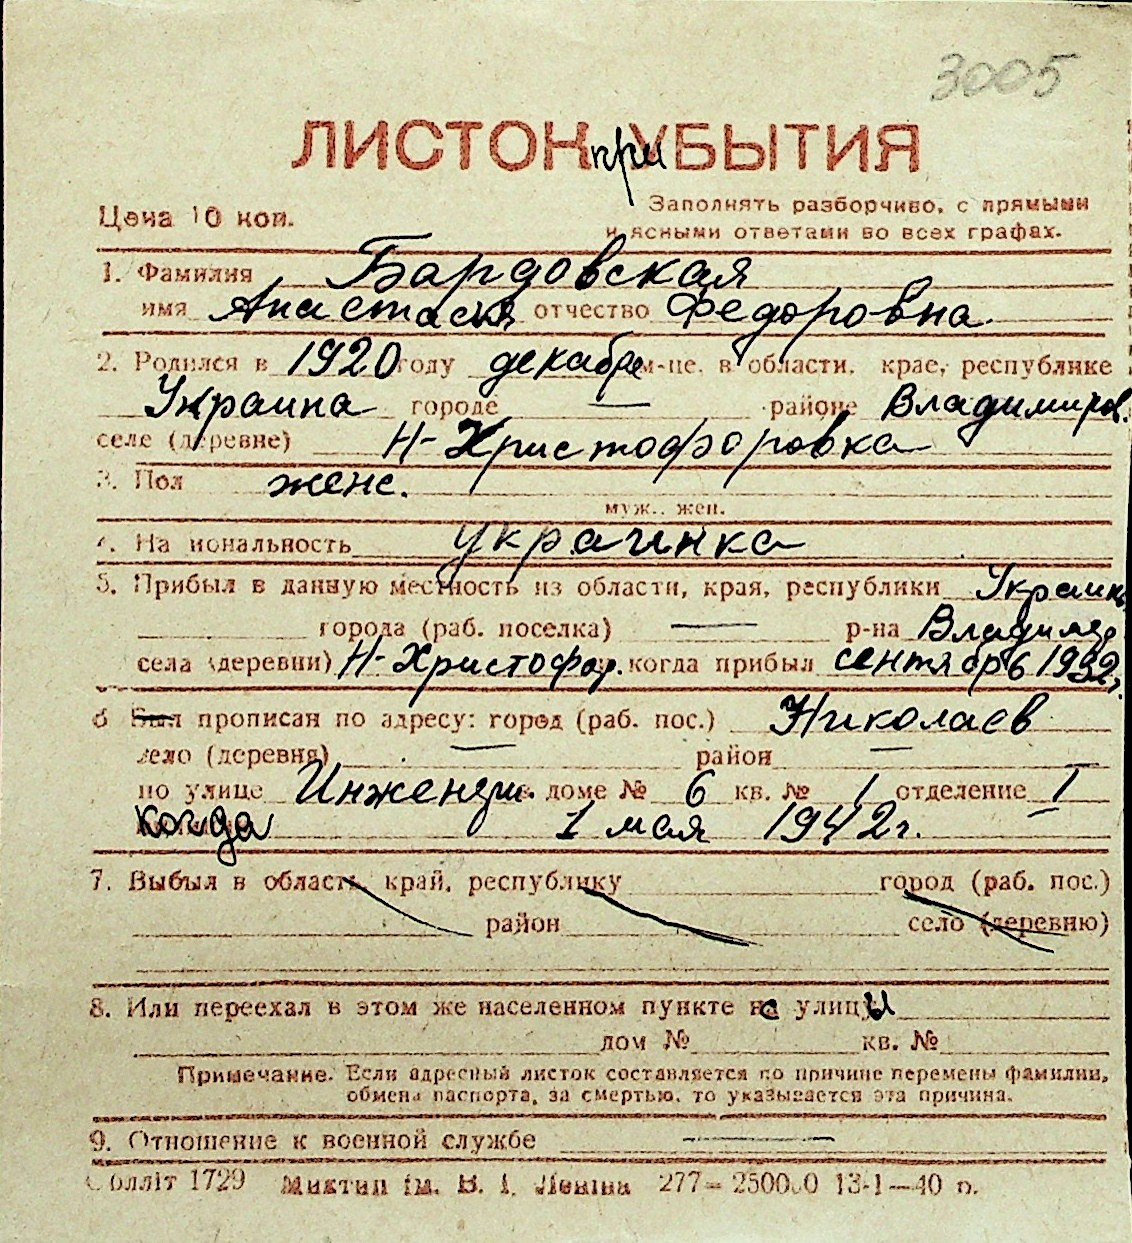 3005
ЛИСТОК при УБЫТИЯ
Цена 10 коп.
Заполнять разборчиво, с прямыми
и ясными ответами во всех графах.
1. Фамилия Бардовская
имя Анастасия отчество Федоровна
2. Родился в 1920 году декабре м-це, в области, крае, республике
Украина городе — районе Владимиров.
селе (деревне) Н-Христофоровка
3. Пол женс.
муж., жен.
4. На иональность украинка
5. Прибыл в данную местность из области, края, республики Украины
города (раб. поселка) — р-на Владимир
села (деревни) Н-Христофор. когда прибыл сентябрь 1932 г.
6 Был прописан по адресу: город (раб. пос.) Николаев
село (деревня) — район —
по улице Инженерн. в доме № 6 кв. № 1 отделение I
когда 1 мая 1942 г.
7. Выбыл в область, край, республику город (раб. пос.)
район село (деревню)
8. Или переехал в этом же населенном пункте с улицы
дом № кв. №
Примечание. Если адресный листок составляется по причине перемены фамилии,
обмена паспорта, за смертью, то указывается эта причина.
9. Отношение к военной службе —
Облліт 1729 Миктип ім. В. І. Леніна 277—250000 13-1—40 р.